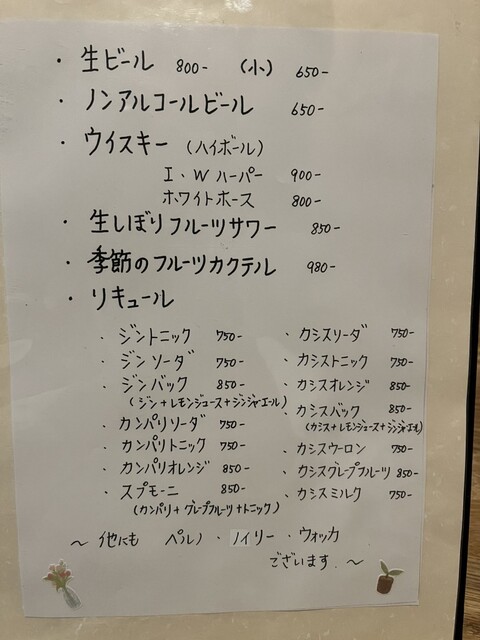 ・生ビール 800- (小) 650-
・ノンアルコールビール 650-
・ウイスキー (ハイボール)
I・Wハーパー 900-
ホワイトホース 800-
・生しぼりフルーツサワー 850-
・季節のフルーツカクテル 980-
・リキュール
・ジントニック 750-
・ジンソーダ 750-
・ジンバック 850-
(ジン+レモンジュース+ジンジャエール)
・カンパリソーダ 750-
・カンパリトニック 750-
・カンパリオレンジ 850-
・スプモーニ 850-
(カンパリ+グレープフルーツ+トニック)
・カシスソーダ 750-
・カシストニック 750-
・カシスオレンジ 850-
・カシスバック 850-
(カシス+レモンジュース+ジンジャエール)
・カシスウーロン 750-
・カシスグレープフルーツ 850-
・カシスミルク 750-
〜他にも ペルノ・ノイリー・ウォッカ
ございます.〜